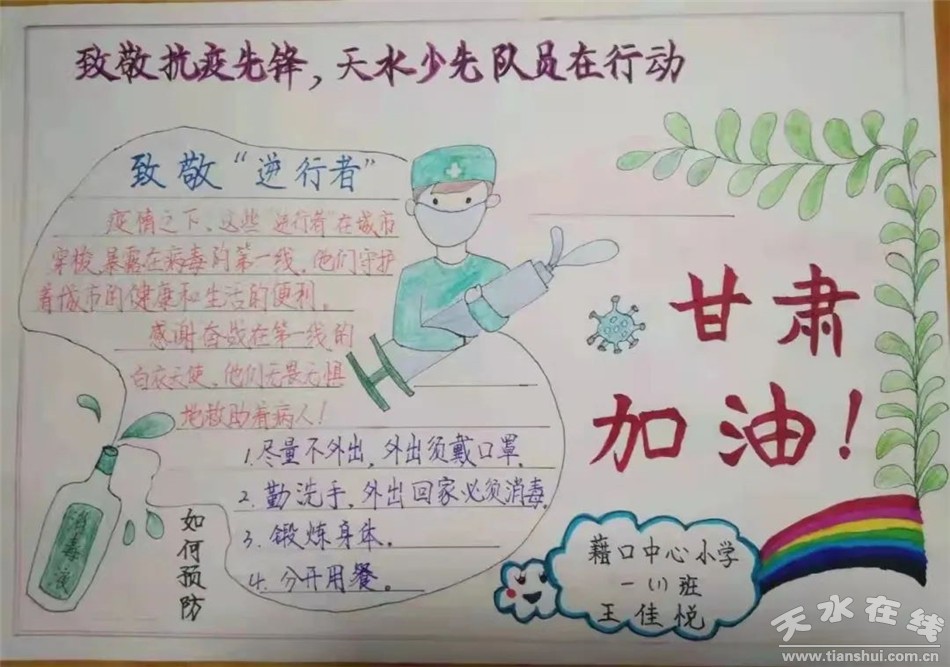 致敬抗疫先锋，天水少先队员在行动
致敬“逆行者”
疫情之下、这些“逆行者”在城市
穿梭，暴露在病毒的第一线，他们守护
着城市的健康和生活的便利。
感谢奋战在第一线的
白衣天使，他们无畏无惧
地救助着病人！
甘肃
加油！
消毒液
如何预防
1.尽量不外出，外出须戴口罩，
2.勤洗手，外出回家必须消毒，
3.锻炼身体。
4.分开用餐。
藉口中心小学
一(1)班
王佳悦
天水在线
www.tianshui.com.cn